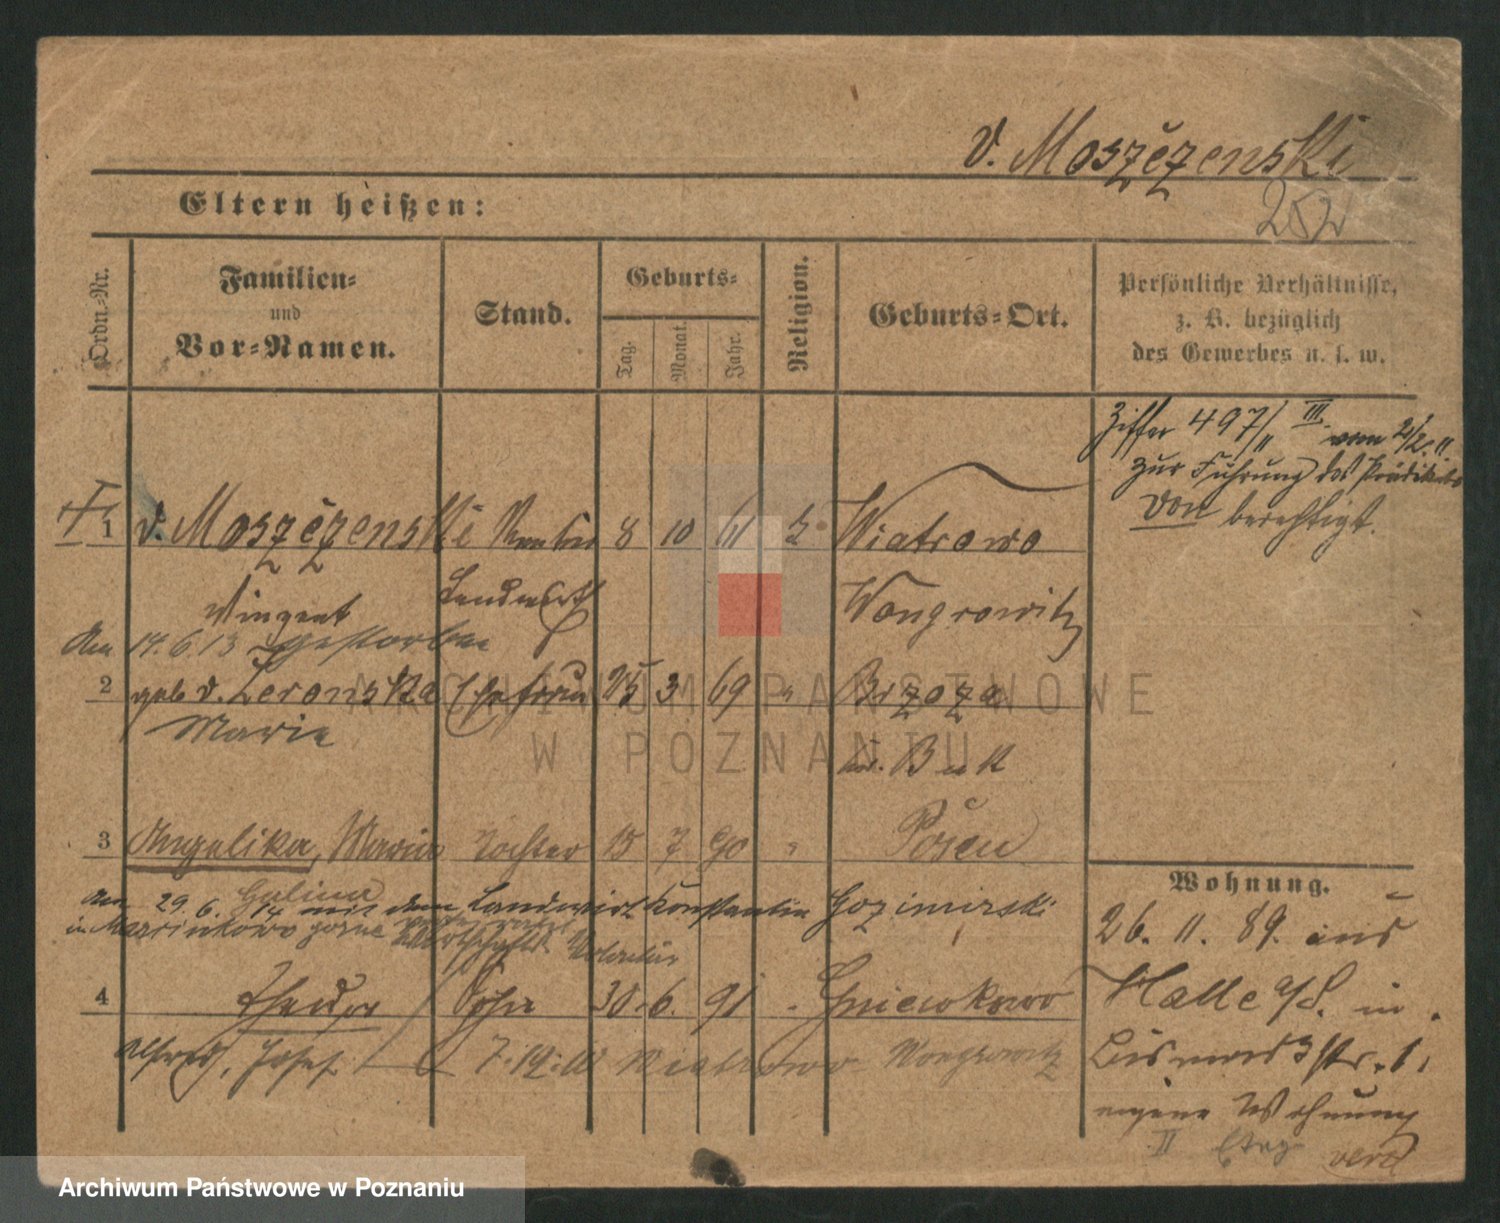 v. Moszčzenski
252
Eltern heißen:
Ordn.-Nr.
Familien-
und
Vor-Namen.
Stand.
Geburts-
Tag.
Monat.
Jahr.
Religion.
Geburts-Ort.
Persönliche Verhältnisse,
z. B. bezüglich
des Gewerbes u. s. w.
Ziffer 497/11 III. vom 21/2. 11.
zur Führung des Prädikats
von berechtigt.
1 v. Moszčzenski Rentier 8 10 61 k Wiatrowo
Vinzent Landwirt Wongrowitz
Am 14.6.13 gestorben
2 geb v. Zeronska Ehefrau 25 3 69 " Brzoza
Marie Kr. Buk
3 Angelika, Maria Tochter 15 7 90 " Posen
Halina
am 29.6.14 mit dem Landwirt Konstantin Gozimirski
in Marcinkowo gorne
Wirtschafts Volontär
4 Theodor Sohn 30. 6. 91 " Gniewkowo
Alfred, Josef 7.12.10 Wiatrowo Wongrowitz
Wohnung.
26. 11. 89. aus
Halle a/S. in
Bismarckstr. 1,
eigene Wohnung
II Etag
ARCHIWUM PAŃSTWOWE
W POZNANIU
Archiwum Państwowe w Poznaniu